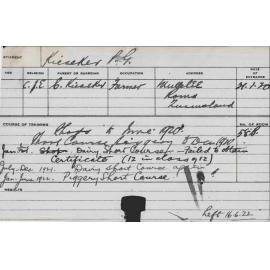 STUDENT Kieseker P.G.
AGE RELIGION PARENT OR GUARDIAN OCCUPATION ADDRESS DATE OF ENTRANCE
C of E C. Kieseker Farmer Roma Queensland 21.1.20
COURSE OF TRAINING NO. OF ROOM
to June 1920. 58B
Short Course Piggery to Dec 1920.
Jan Dairy Short Course - Failed to obtain
Certificate (12 in class of 12)
July-Dec 1921. Dairy Short Course again
Jan-June 1922. Piggery Short Course
Left 16.6.22